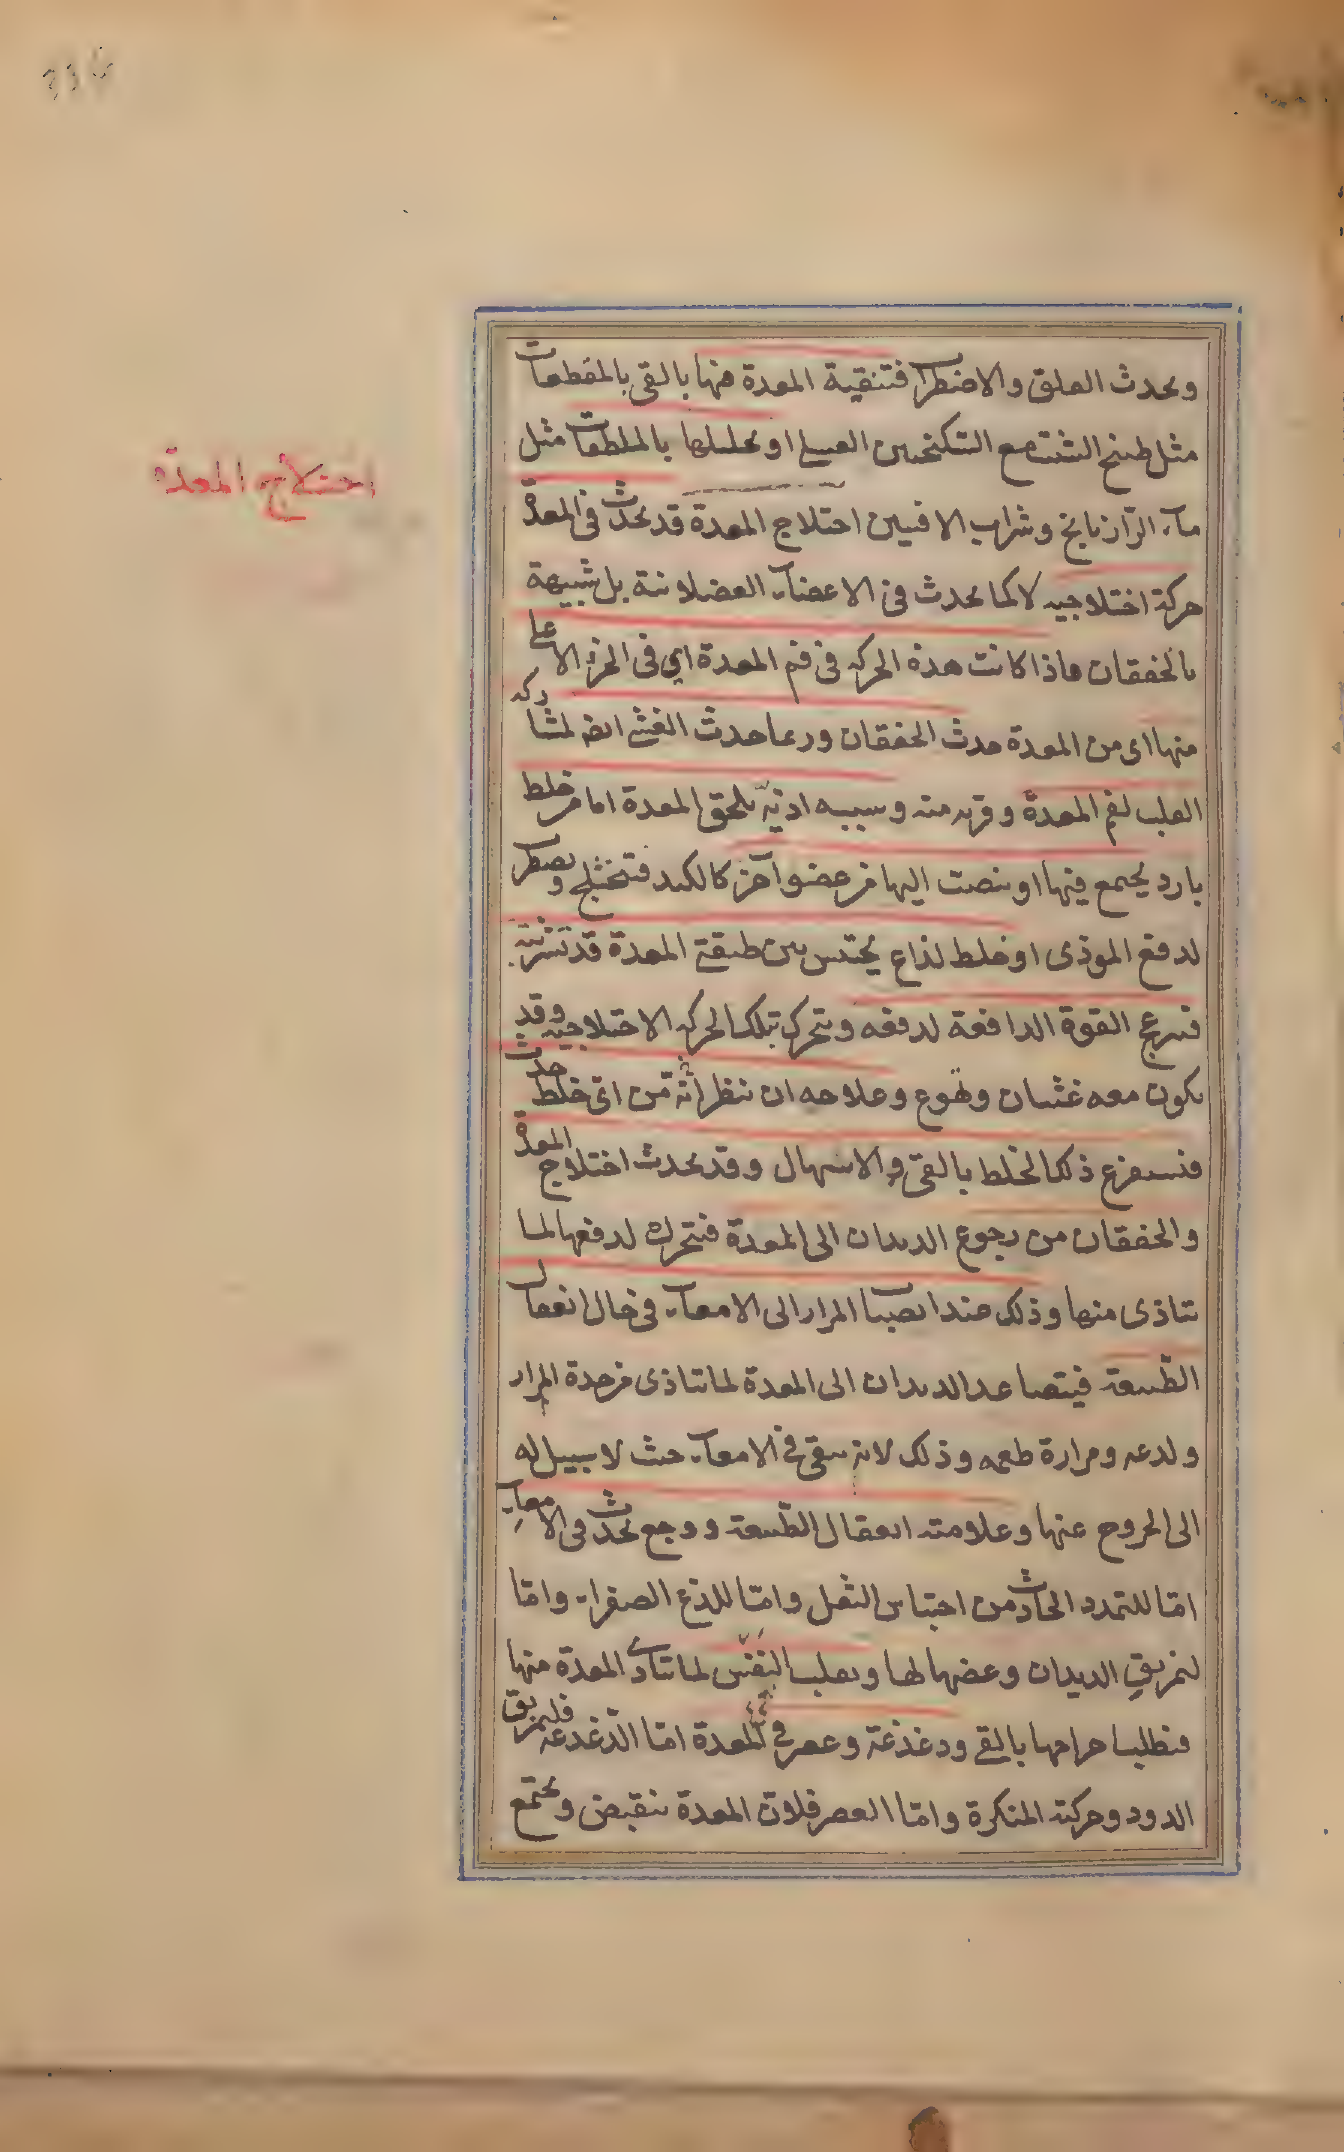 اختلاج المعدة
ويحدث القلق والاضطراب فتنقية المعدة منها بالقئ بالمقطعات
مثل طبيخ الشبت مع السكنجبين العسلى او تحليلها بالملطفات مثل
ماء الرازيانج وشراب الافسنتين اختلاج المعدة قد يحدث فى المعدة
حركة اختلاجية لا كما يحدث فى الاعضاء العضلانية بل شبيهة
بالخفقان فاذا كانت هذه الحركة فى فم المعدة اى فى الجزء الاعلى
منها اى من المعدة حدث الخفقان وربما حدث الغشى ايضا لمشاركة
القلب لفم المعدة وقربه منه وسببه اذية تلحق المعدة اما من خلط
بارد يجتمع فيها او ينصب اليها من عضو آخر كالكبد فتختلج وتضطرب
لدفع الموذى او خلط لذاع يحتبس بين طبقتى المعدة قد تشربته
القوة الدافعة لدفعه ويتحرك تلك الحركة الاختلاجية وقد
يكون معه غثيان وتهوع وعلاجه ان ينظر انه من اى خلط حدث
فيستفرغ ذلك الخلط بالقئ والاسهال وقد يحدث اختلاج المعدة
والخفقان من رجوع الديدان الى المعدة فتتحرك لدفعها لما
تتاذى منها وذلك عند انصباب المرار الى الامعاء فى حال انعقال
الطبيعة فيتصاعد الديدان الى المعدة لما تتاذى من حدة المرار
ولذعه ومرارة طعمه وذلك لانه يبقى فى الامعاء حيث لا سبيل له
الى الخروج عنها وعلامته انعقال الطبيعة ووجع يحدث فى الامعاء
اما للتمدد الحادث من احتباس الثفل واما للذع الصفراء واما
لتمزيق الديدان وعضها لها وتقلب النفس لما تتاذى المعدة منها
فتطلب اخراجها بالقئ ودغدغة وعصر فى المعدة اما الدغدغة فلتمزيق
الدود وحركته المنكرة واما العصر فلان المعدة تنقبض وتجتمع